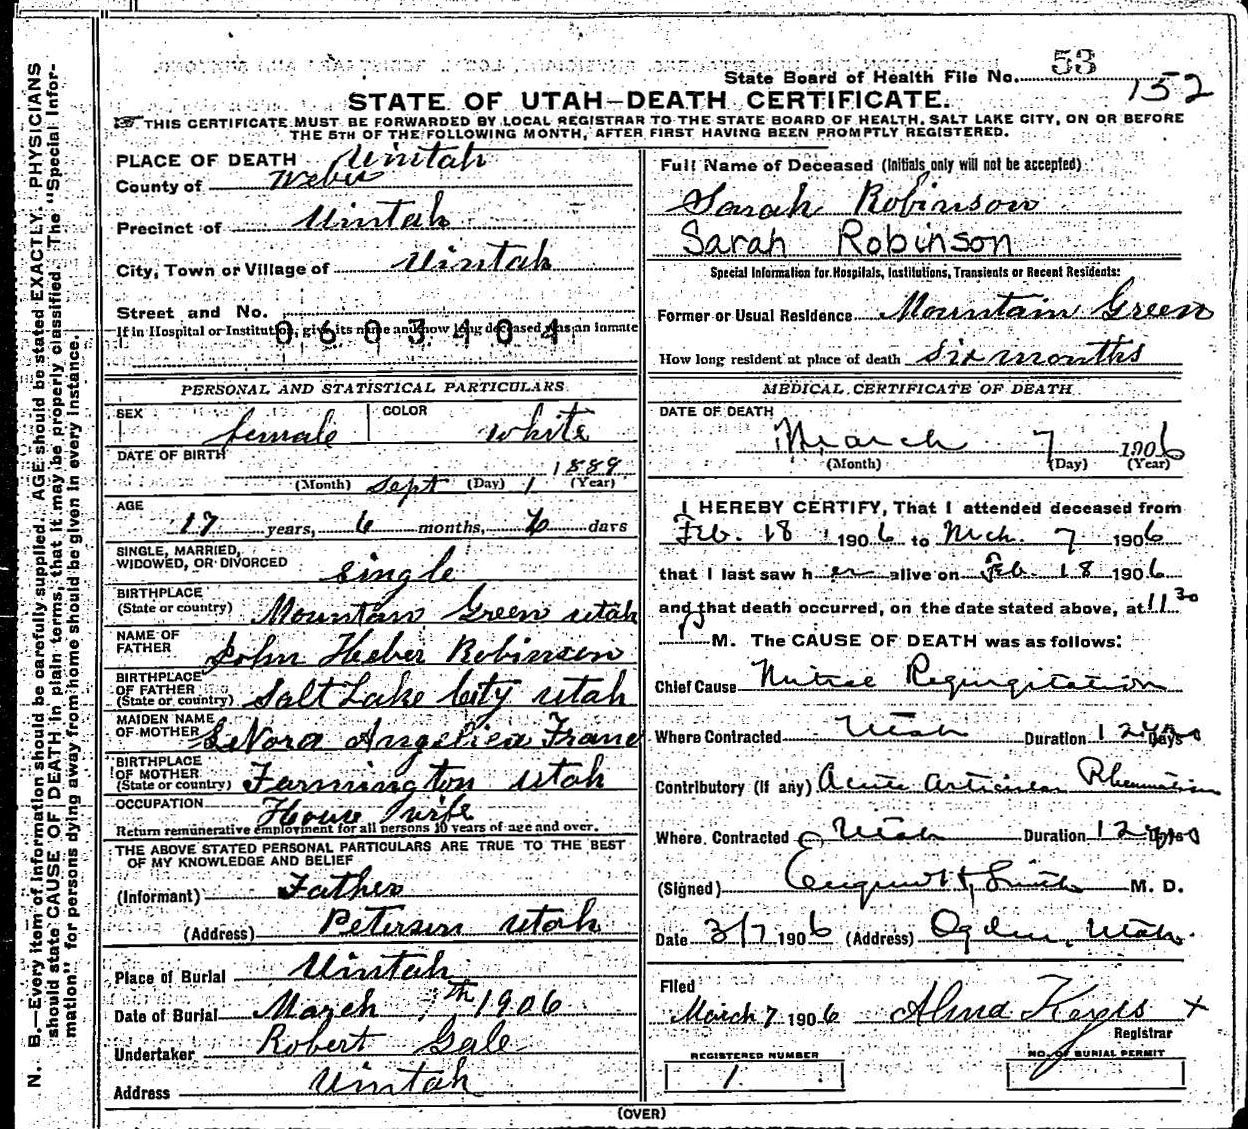 N. B.—Every item of information should be carefully supplied. AGE should be stated EXACTLY. PHYSICIANS
should state CAUSE OF DEATH in plain terms, that it may be properly classified. The "Special Infor-
mation" for persons dying away from home should be given in every instance.
State Board of Health File No. 53
152
STATE OF UTAH—DEATH CERTIFICATE.
THIS CERTIFICATE MUST BE FORWARDED BY LOCAL REGISTRAR TO THE STATE BOARD OF HEALTH, SALT LAKE CITY, ON OR BEFORE
THE 5TH OF THE FOLLOWING MONTH, AFTER FIRST HAVING BEEN PROMPTLY REGISTERED.
PLACE OF DEATH Uintah
County of Weber
Precinct of Uintah
City, Town or Village of Uintah
Street and No.
If in Hospital or Institution, give its name and how long deceased was an inmate
0603404
PERSONAL AND STATISTICAL PARTICULARS
SEX female COLOR white
DATE OF BIRTH 1889
(Month) Sept (Day) 1 (Year)
AGE
17 years, 6 months, 6 days
SINGLE, MARRIED,
WIDOWED, OR DIVORCED single
BIRTHPLACE
(State or country) Mountain Green Utah
NAME OF
FATHER John Heber Robinson
BIRTHPLACE
OF FATHER
(State or country) Salt Lake City Utah
MAIDEN NAME
OF MOTHER LeVora Angeliea
BIRTHPLACE
OF MOTHER
(State or country) Farmington Utah
OCCUPATION House wife
Return remunerative employment for all persons 10 years of age and over.
THE ABOVE STATED PERSONAL PARTICULARS ARE TRUE TO THE BEST
OF MY KNOWLEDGE AND BELIEF
(Informant) Father
(Address) Peterson Utah
Place of Burial Uintah
Date of Burial March th 1906
Undertaker Robert Gale
Address Uintah
Full Name of Deceased (Initials only will not be accepted)
Sarah Robinson
Sarah Robinson
Special Information for Hospitals, Institutions, Transients or Recent Residents:
Former or Usual Residence Mountain Green
How long resident at place of death six months
MEDICAL CERTIFICATE OF DEATH
DATE OF DEATH
March 7 1906
(Month) (Day) (Year)
I HEREBY CERTIFY, That I attended deceased from
Feb. 18 1906 to Mch. 7 1906
that I last saw her alive on Feb. 18 1906
and that death occurred, on the date stated above, at 11 30
P M. The CAUSE OF DEATH was as follows:
Chief Cause Mitral Regurgitation
Where Contracted Utah Duration 12 Days
Contributory (if any) Acute articular Rheumatism
Where Contracted Utah Duration 12 Days
(Signed) Eugene H. Smith M. D.
Date 3/7 1906 (Address) Ogden, Utah.
Filed
March 7 1906 Alma Keyes x
Registrar
REGISTERED NUMBER
1
NO. OF BURIAL PERMIT
(OVER)